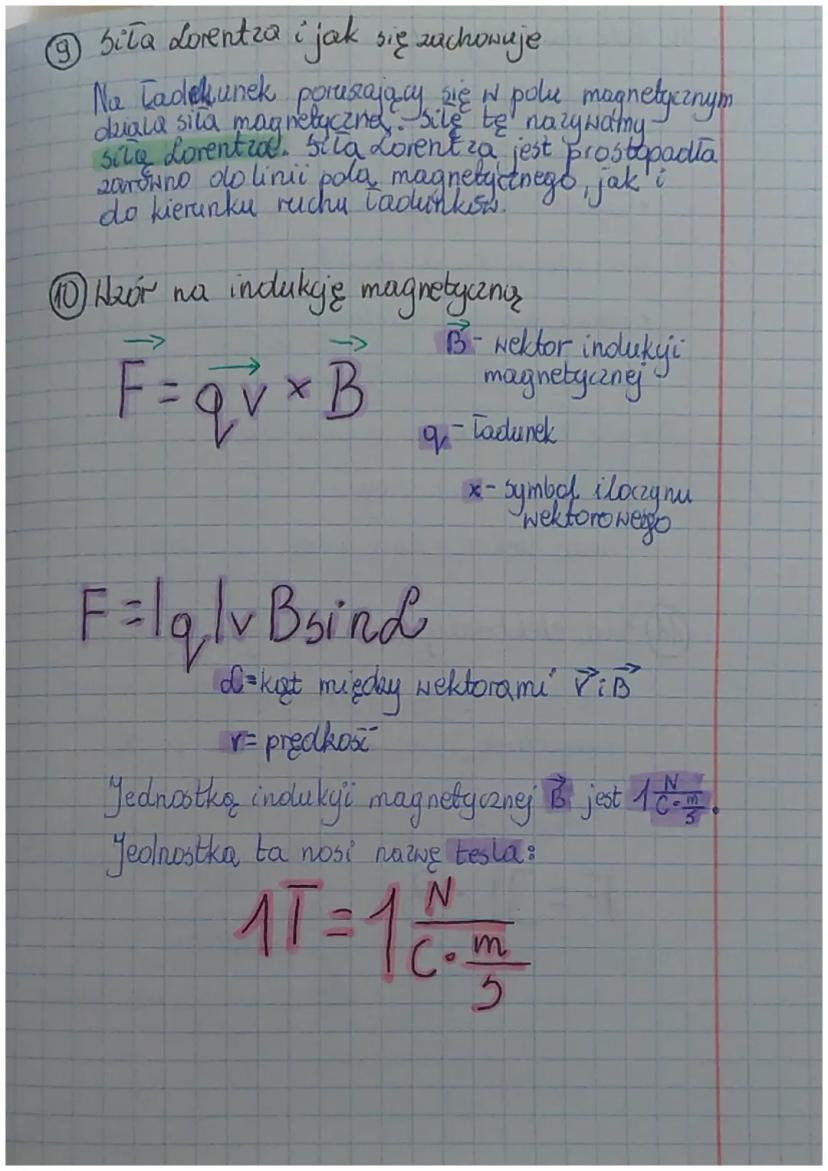 ⑨ Siła Lorentza i jak się zachowuje
Na ładunek poruszający się w polu magnetycznym
działa siła magnetyczna. Siłę tę nazywamy
siłą Lorentza. Siła Lorentza jest prostopadła
zarówno do linii pola magnetycznego, jak i
do kierunku ruchu ładunków.
⑩ Wzór na indukcję magnetyczną
F⃗ = qv⃗ × B⃗
B⃗ - wektor indukcji
magnetycznej
q - ładunek
x - symbol iloczynu
wektorowego
F = |q|v B sin α
α = kąt między wektorami v⃗ i B⃗
v = prędkość
Jednostką indukcji magnetycznej B⃗ jest 1 N/(C·m/s).
Jednostka ta nosi nazwę tesla:
1T = 1 N/(C·m/s)